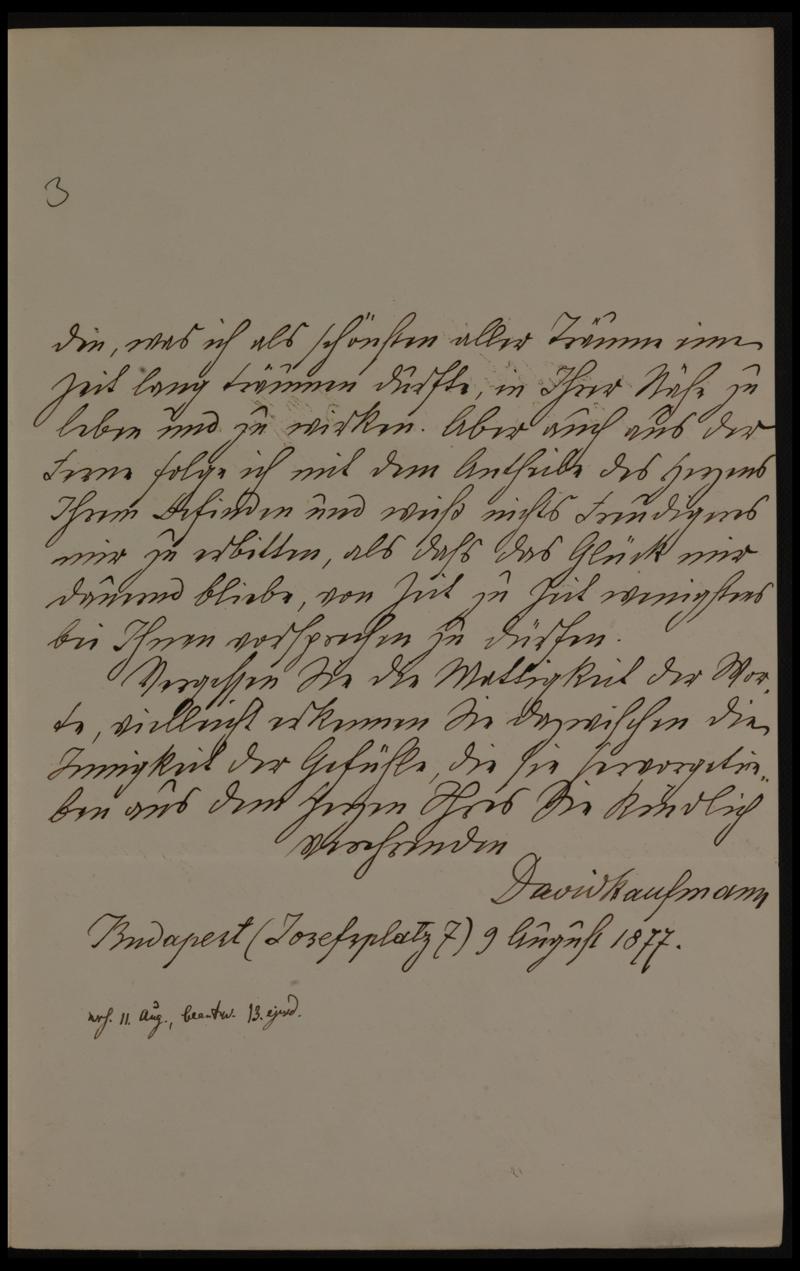 3
den, was ich als schönsten aller Träume eine
Zeit lang träumen durfte, in Ihrer Nähe zu
leben und zu wirken. Aber auch aus der
Ferne folge ich mit dem Antheile des Herzens
Ihrem Befinden und weiß nichts Freudigeres
mir zu erbitten, als dass das Glück mir
dauernd bliebe, von Zeit zu Zeit wenigstens
bei Ihnen vorsprechen zu dürfen.
Vergessen Sie die Mattigkeit der Wor-
te, vielleicht erkennen Sie dazwischen die
Innigkeit der Gefühle, die sie hervorgetrie-
ben aus dem Herzen Ihres Sie kindlich
verehrenden
David Kaufmann
Budapest (Josefsplatz 7) 9 August 1877.
11. Aug., beantw. 13. ejusd.